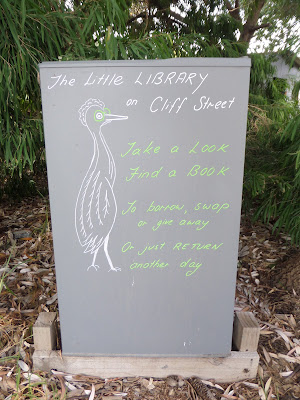 The Little LIBRARY
on Cliff Street
Take a Look
Find a BOOK
To borrow, swap
or give away
Or just RETURN
another day